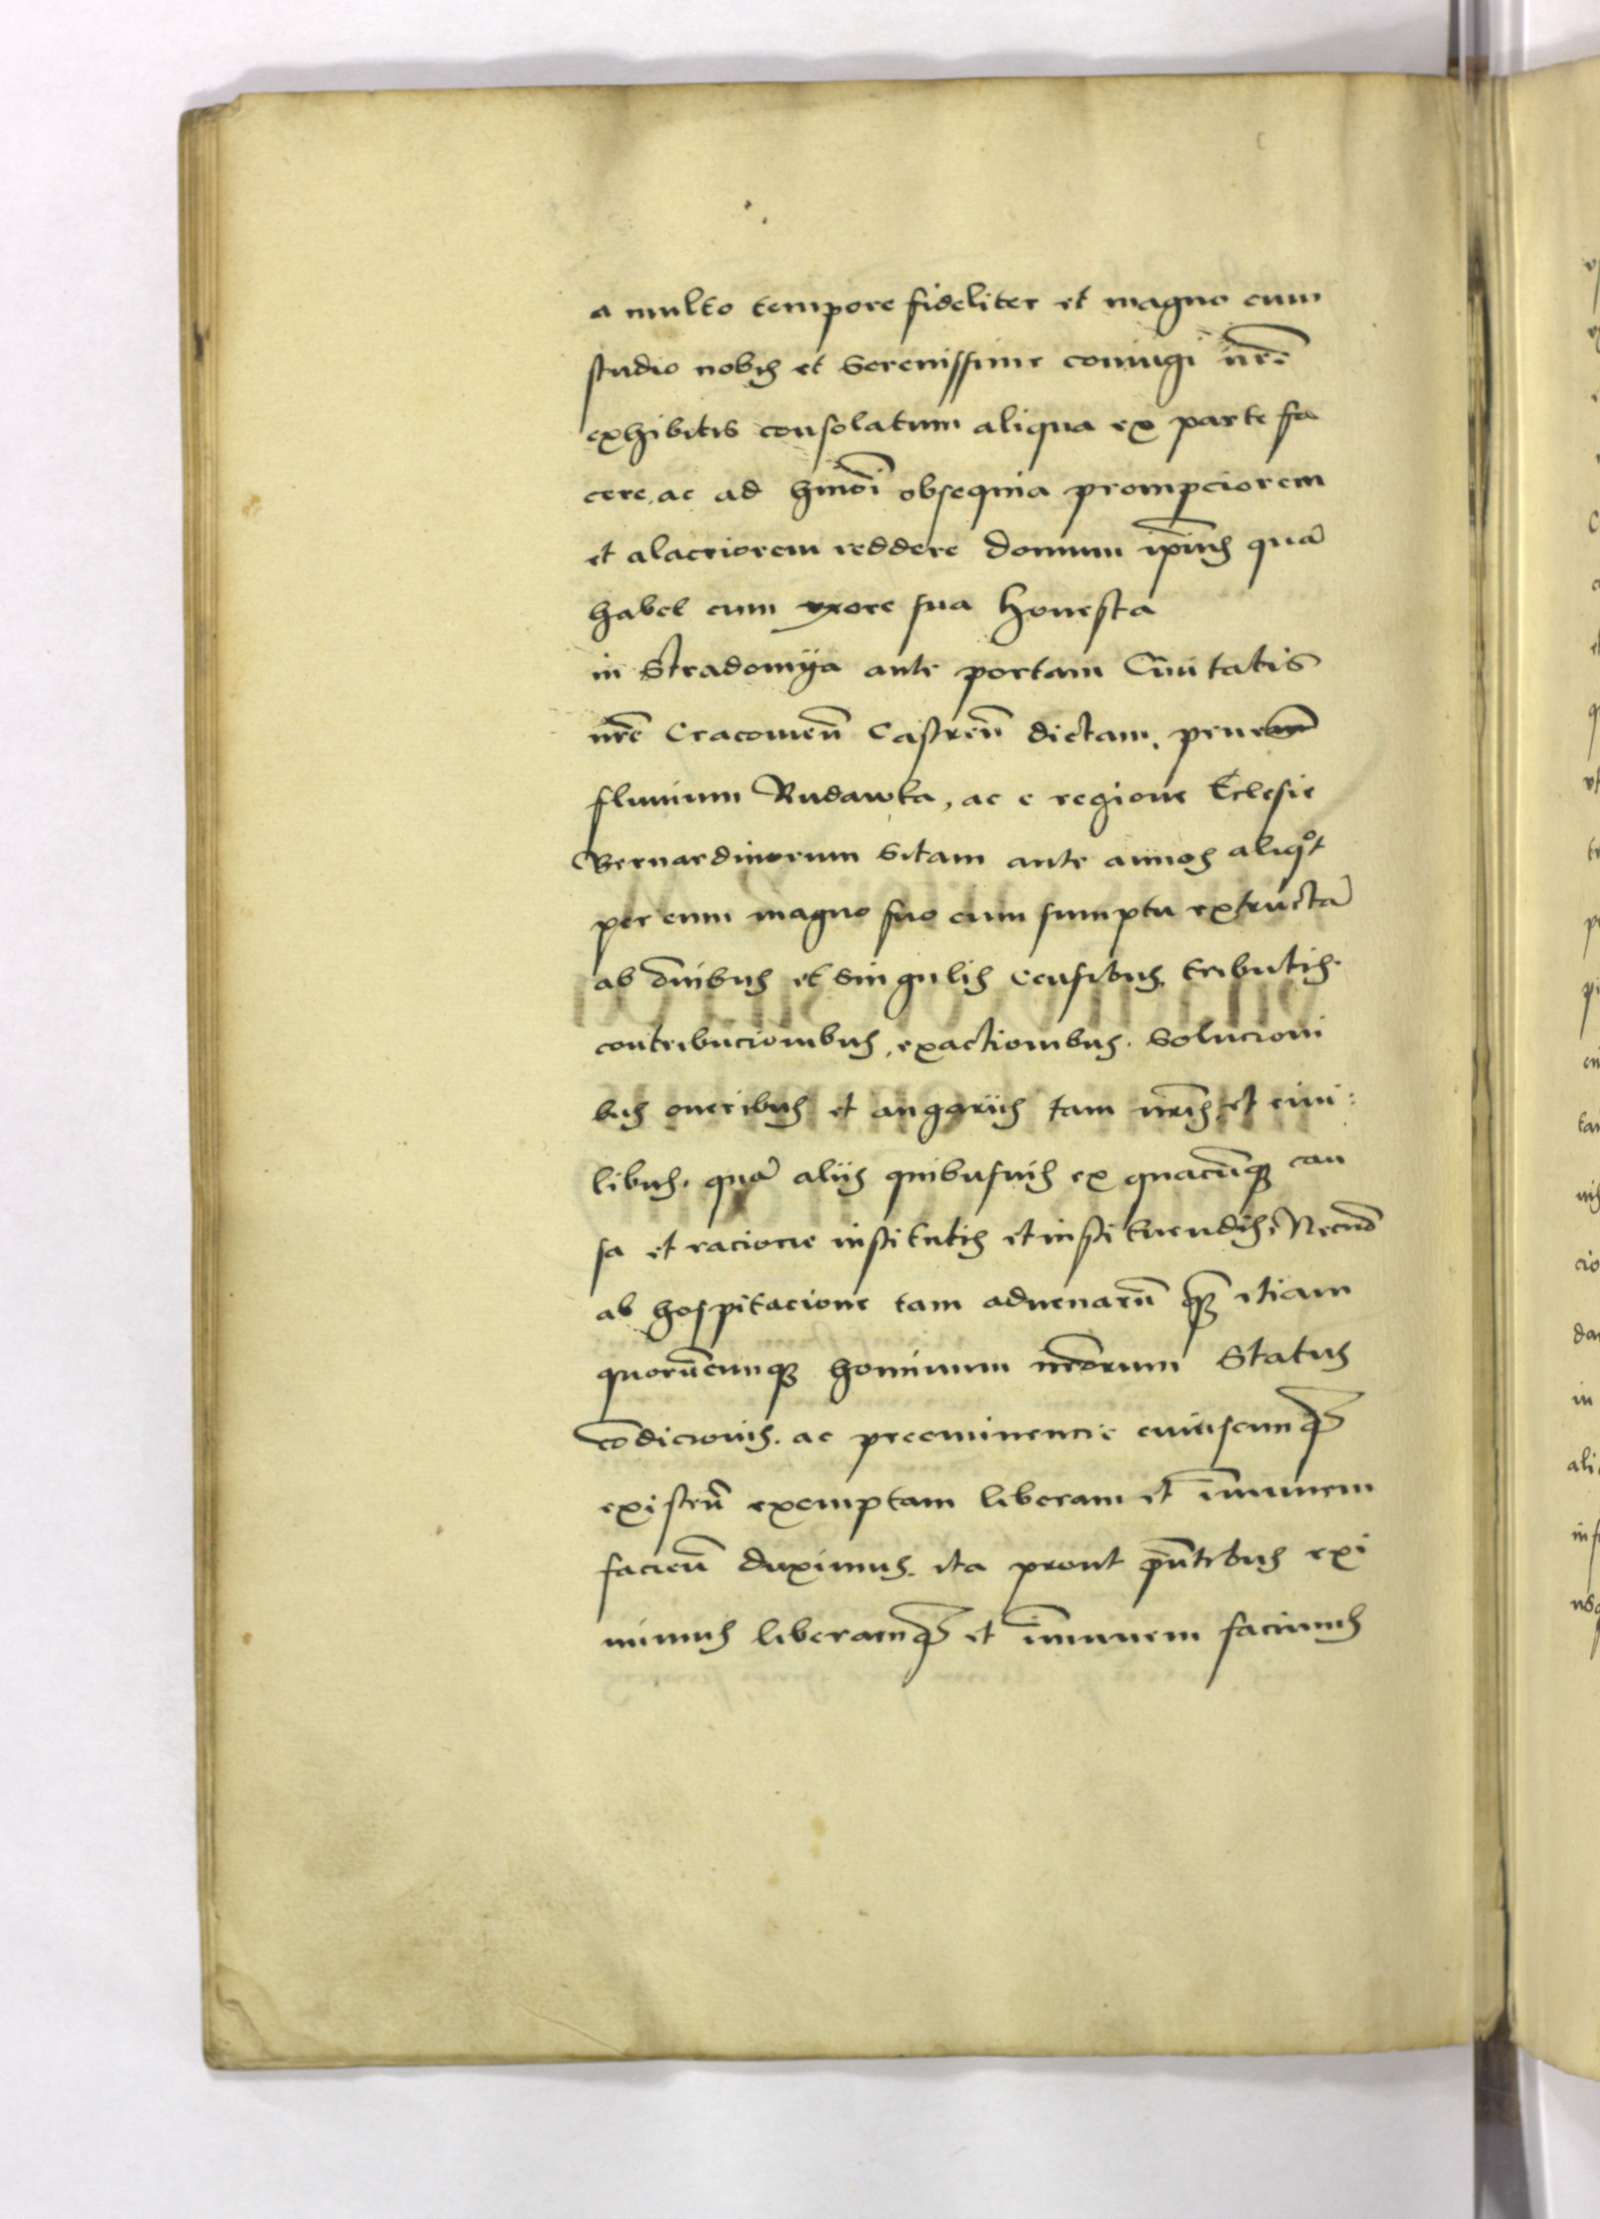 a multo tempore fideliter et magno cum
studio nobis et Serenissime coniugi nr̃e
exhibitis consolatum aliqua ex parte fa
cere, ac ad hmõi obsequia prompciorem
et alacriorem reddere domum ip̃ius quã
habet cum uxore sua Honesta
in Stradomÿa ante portam Ciuitatis
nr̃e Cracouieñ Castreñ dictam,
fluuium Rudawka, ac e regione Eclesie
Bernardinorum Sitam ante annos aliqͦt
per eum magno suo cum sumptu extructã
ab õnibus et Singulis Censibus, tributis.
contribucionibus, exactionibus. Solucioni
bus oneribus et angariis tam nr̃is, et ciui:
libus. quã aliis quibusuis ex quacũqꝫ cau
sa et racione institutis et instituendis, Necnõ
ab hospitacione tam aduenarũ qꝫ etiam
quorũcunqꝫ hominum nr̃orum Status
cõdicionis. ac preeminencie cuiuscunqꝫ
existeñ exemptam liberam et im̃unem
facieñ duximus. ita prout p̃ntibus exi
mimus liberamqꝫ et im̃unem facimus